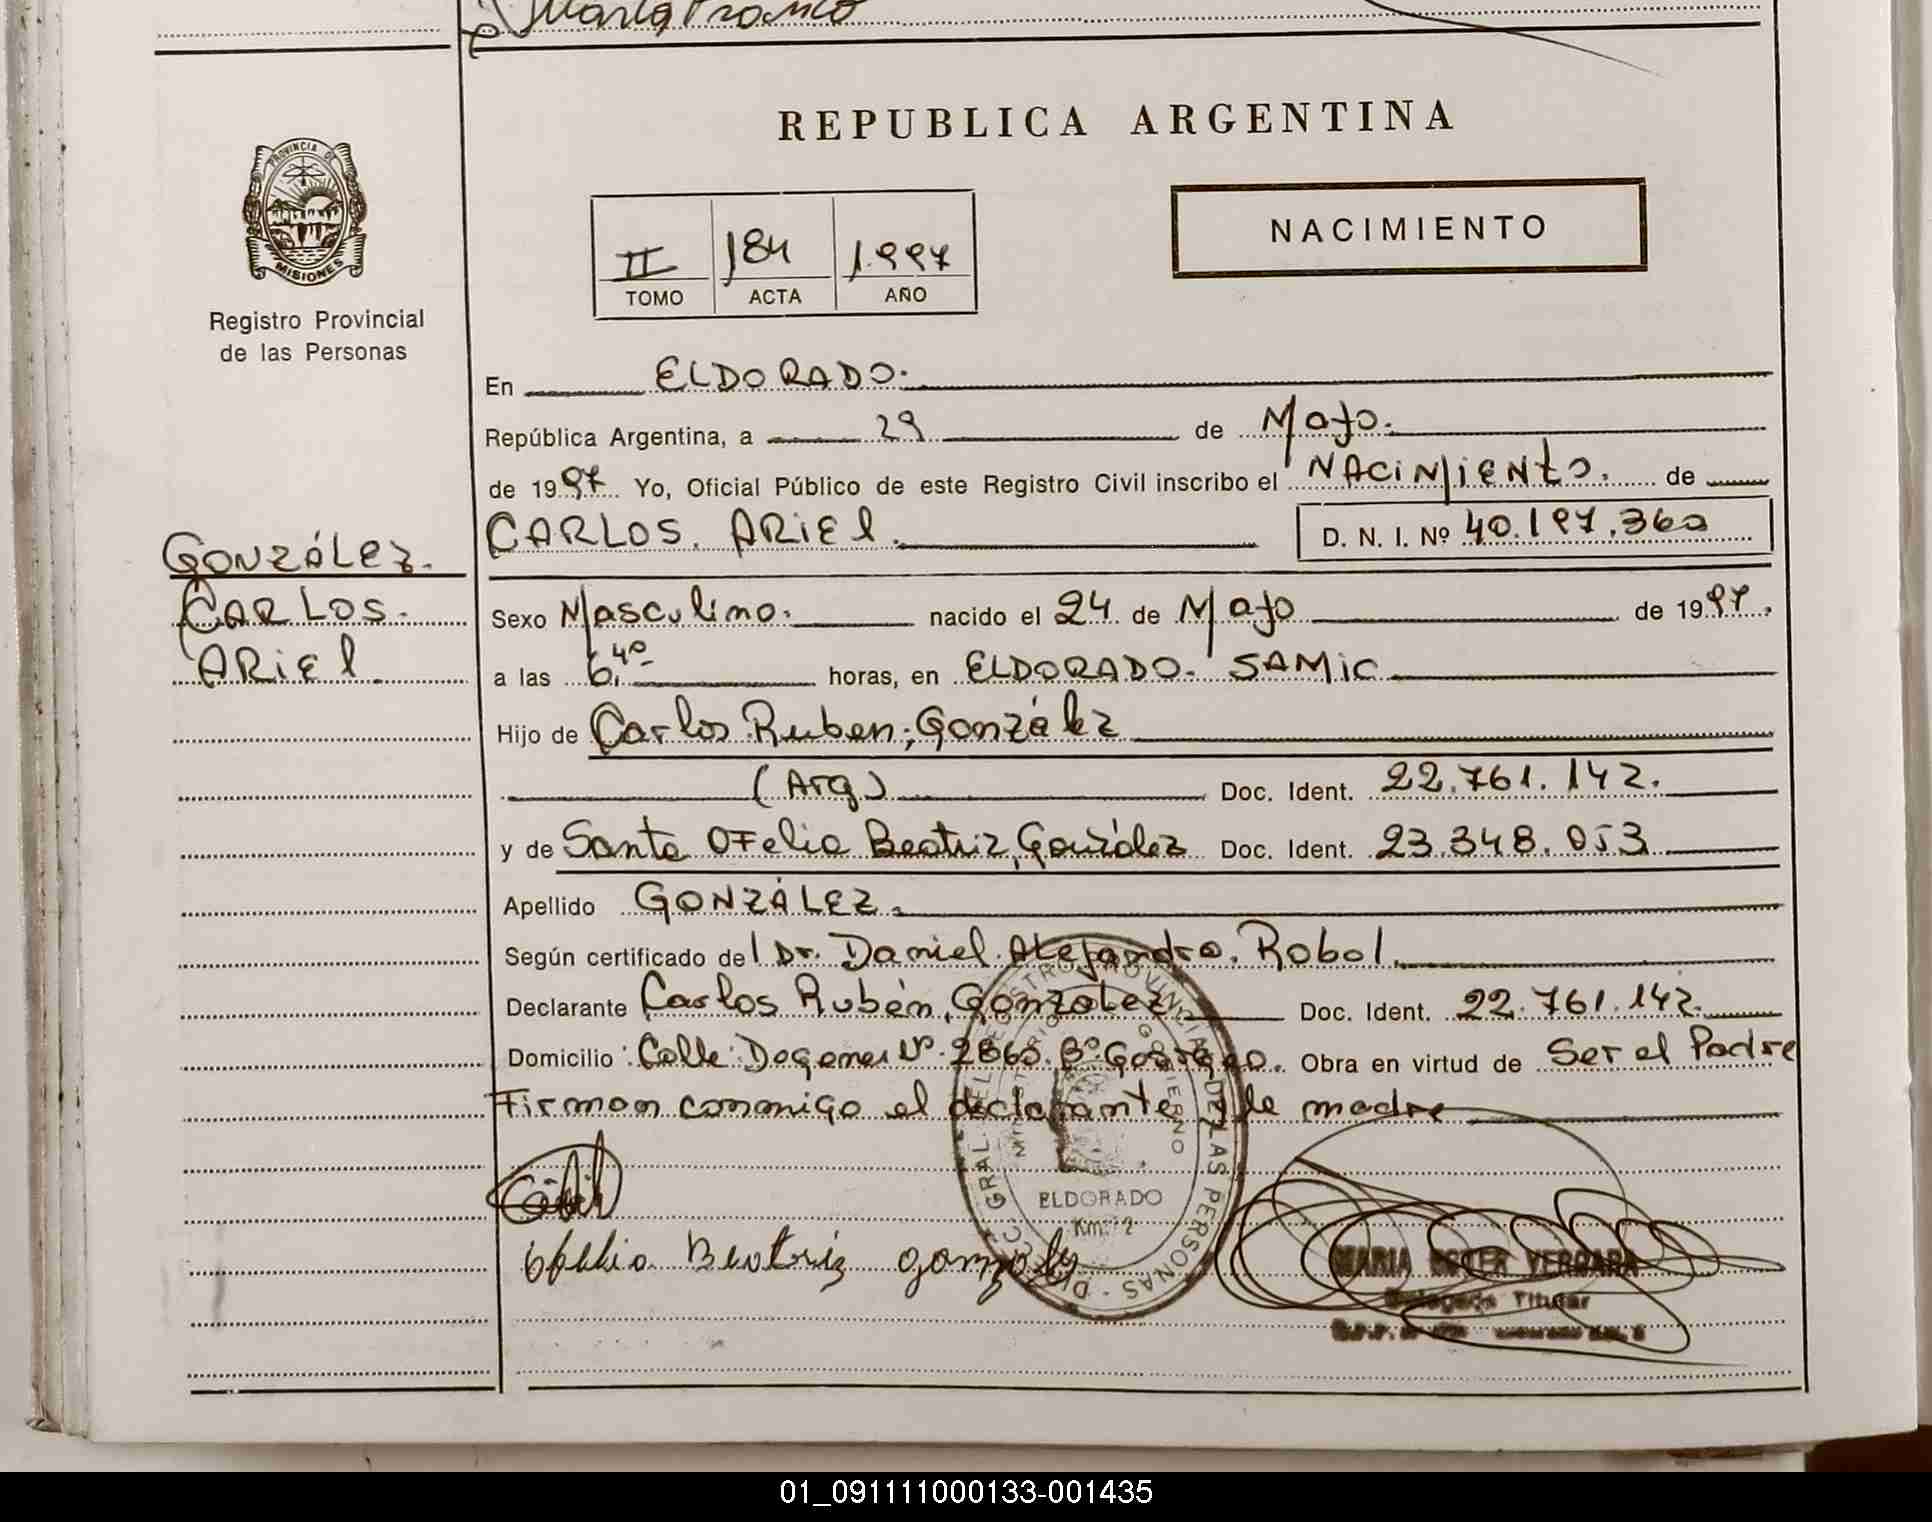 María Franco
REPUBLICA ARGENTINA
PROVINCIA DE
MISIONES
Registro Provincial
de las Personas
II 184 1.997
TOMO ACTA AÑO
NACIMIENTO
En ELDORADO.
República Argentina, a 29 de Mayo.
de 1997 Yo, Oficial Público de este Registro Civil inscribo el NACIMIENTO. de
CARLOS. ARIEL. D. N. I. Nº 40.197.360
GONZÁLEZ.
CARLOS.
ARIEL.
Sexo Masculino. nacido el 24 de Mayo de 1997.
a las 6,40 horas, en ELDORADO. SAMIC
Hijo de Carlos Ruben, González
(Arg) Doc. Ident. 22.761.142.
y de Santa Ofelia Beatriz, González Doc. Ident. 23.348.053
Apellido GONZÁLEZ.
Según certificado del Dr. Daniel Alejandro. Robol.
Declarante Carlos Rubén, González Doc. Ident. 22.761.142.
Domicilio: Calle: Nº 2865. Bº Obra en virtud de Ser el Padre
Firman conmigo el declarante y la madre
DIRECC. GRAL. DEL REGISTRO PROVINCIAL DE LAS PERSONAS
MINISTERIO GOBIERNO
ELDORADO
Km. 2
Ofelia Beatriz Gonzalez
MARIA ESTER VERGARA
Delegada Titular
01_091111000133-001435